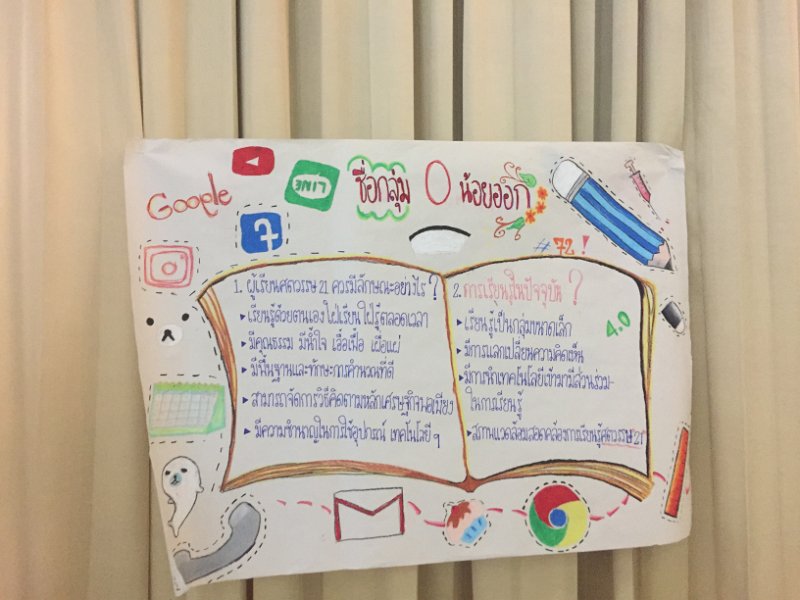 Google
LINE
ชื่อกลุ่ม O น้อยออก
#72!
1. ผู้เรียนศตวรรษ 21 ควรมีลักษณะอย่างไร?
▸ เรียนรู้ด้วยตนเอง ใฝ่เรียน ใฝ่รู้ตลอดเวลา
▸ มีคุณธรรม มีน้ำใจ เอื้อเฟื้อ เผื่อแผ่
▸ มีพื้นฐานและทักษะการคำนวณที่ดี
▸ สามารถจัดการวิธีคิดตามหลักเศรษฐกิจพอเพียง
▸ มีความชำนาญในการใช้อุปกรณ์ เทคโนโลยี ๆ
2. การเรียนรู้ในปัจจุบัน?
▸ เรียนรู้เป็นกลุ่มขนาดเล็ก
▸ มีการแลกเปลี่ยนความคิดเห็น
▸ มีการนำเทคโนโลยีเข้ามามีส่วนร่วม-
ในการเรียนรู้
▸ สภาพแวดล้อมสอดคล้องการเรียนรู้ศตวรรษ 21
4.0